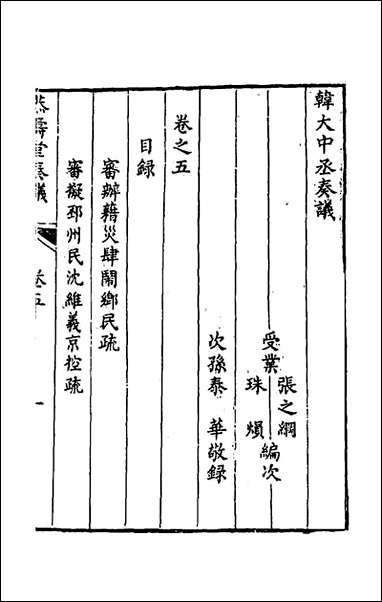 韓大中丞奏議
受業
張之綱
珠煩
編次
次孫泰華敬録
卷之五
目録
審辦藉災肆鬧鄉民疏
審擬邳州民沈維義京控疏
壽堂奏議
卷五
一